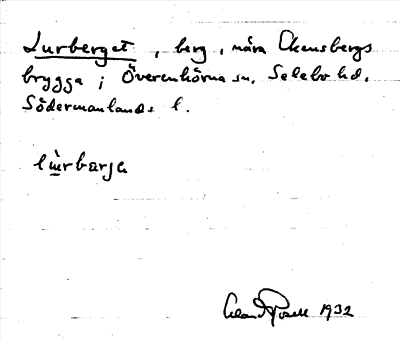 Lurberget, berg, nära Ekensbergs
brygga i Överenhörna sn. Selebo hd.
Södermanlands l.
lu̱rbarja
1932